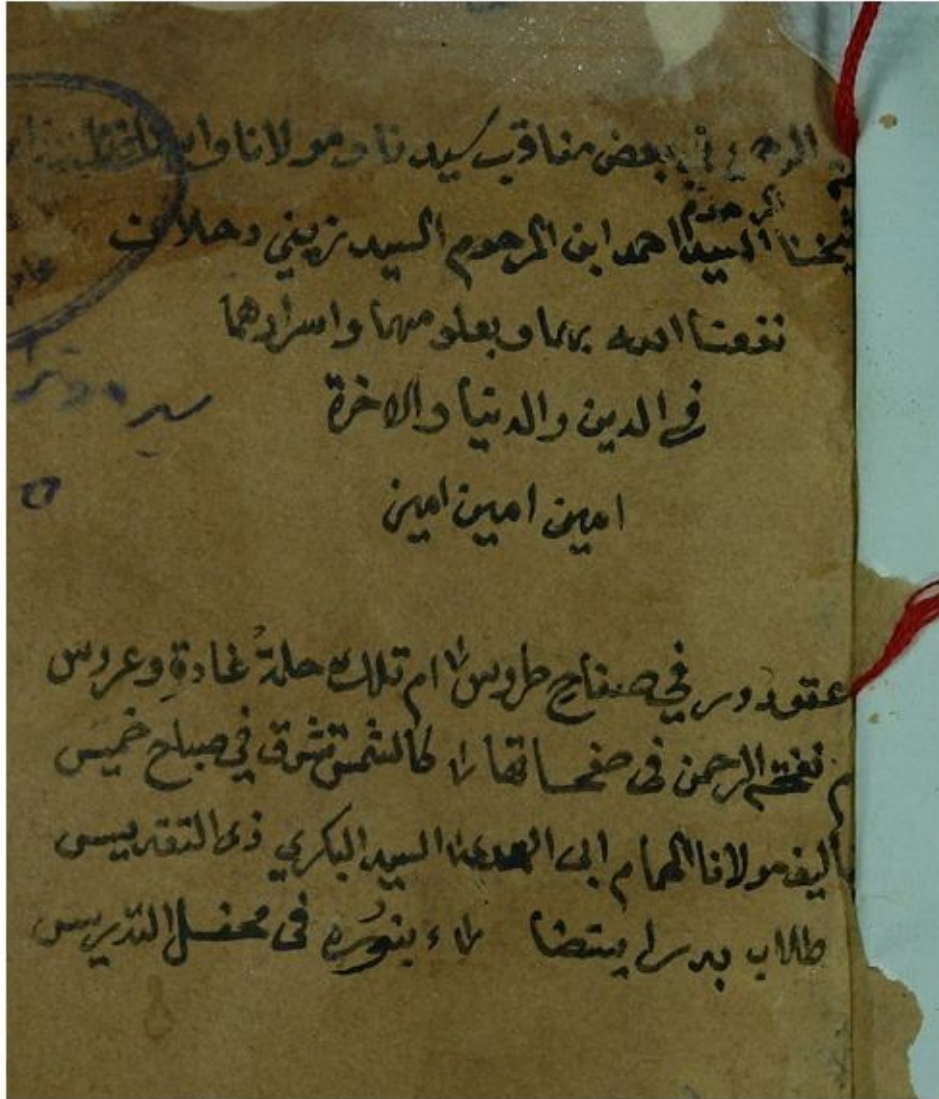 الرحمن في بعض مناقب سيدنا ومولانا
المرحوم
شيخنا السيد احمد ابن المرحوم السيد زيني دحلان
نفعنا الله بهما وبعلومهما واسرارهما
في الدين والدنيا والاخرة
امين امين امين
عقود در في صفاح طروس ام تلك حلة غادة وعروس
نفحة الرحمن في صفحاتها كالشمس تشرق في صباح خميس
تأليف مولانا الهمام ابي السيد البكري ذي التقديس
طلاب بدرا يستضا ء بنوره في محفل التدريس